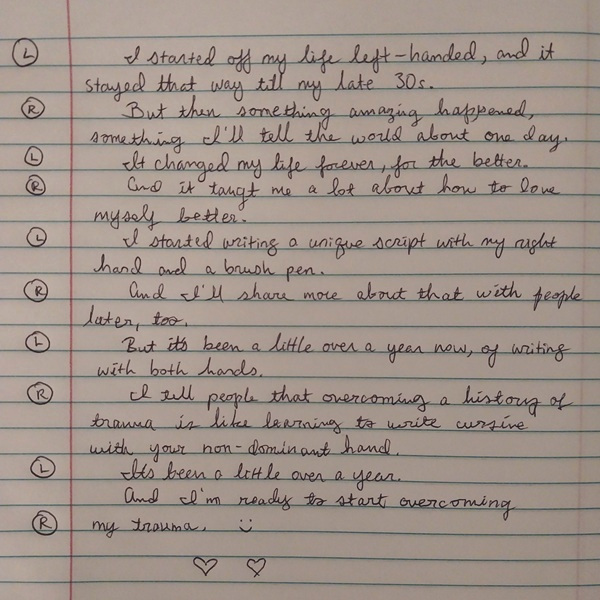 Ⓛ I started off my life left-handed, and it
stayed that way till my late 30s.
Ⓡ But then something amazing happened,
something I'll tell the world about one day.
Ⓛ It changed my life forever, for the better.
Ⓡ And it taugt me a lot about how to love
myself better.
Ⓛ I started writing a unique script with my right
hand and a brush pen.
Ⓡ And I'll share more about that with people
later, too.
Ⓛ But it's been a little over a year now, of writing
with both hands.
Ⓡ I tell people that overcoming a history of
trauma is like learning to write cursive
with your non-dominant hand.
Ⓛ It's been a little over a year.
And I'm ready to start overcoming
Ⓡ my trauma. :)
♡ ♡